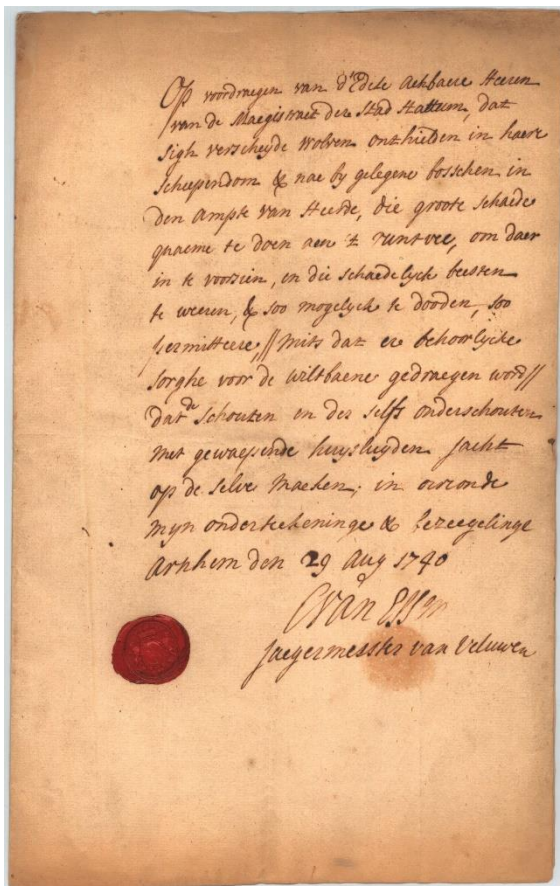 Op voordragen van d'Edele Achtbaere Heeren
van de Magistraet der Stad Hattum, dat
sigh verscheyde wolven onthielden in haere
schependom & nae by gelegene bosschen in
den ampte van Heerde, die groote schaede
quaeme te doen aen 't runtvee, om daer
in te voorsien, en die schaedelyck beesten
te weeren, & soo mogelyck te dooden, soo
permittere // mits dat er behoorlycke
sorghe voor de wiltbaene gedraegen word //
dat de schouten en der selfs onderschouten
met gewaepende huysluyden jacht
op de selve maeken; in oirconde
myn onderteekeninge & bezeegelinge
Arnhem den 29 Aug 1740
C van Essen
Jaegermeester van Veluwen